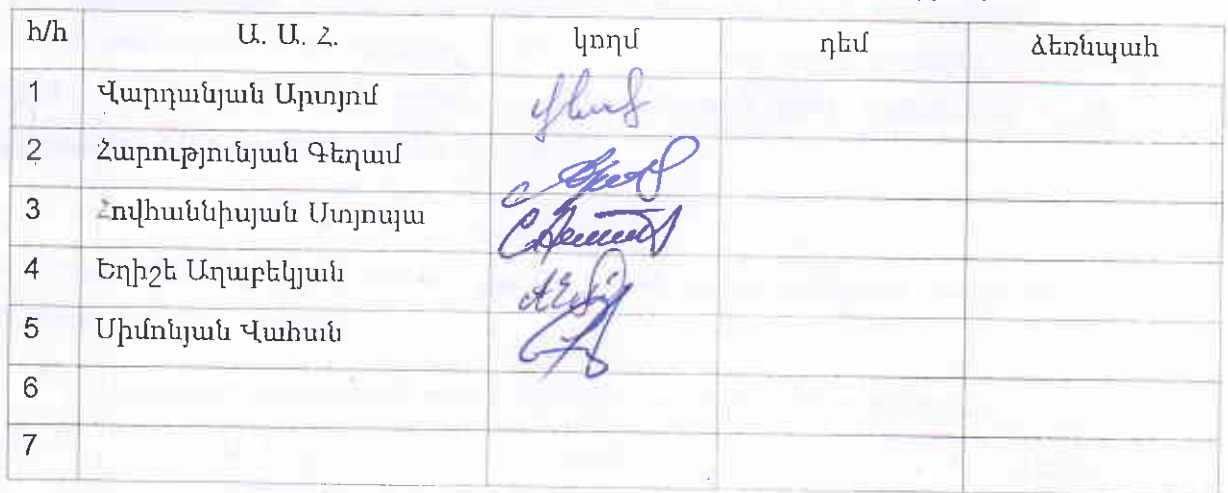 հ/հ Ա. Ա. Հ. կողմ դեմ ձեռնպահ
1 Վարդանյան Արտյոմ
2 Հարությունյան Գեղամ
3 Հովհաննիսյան Ստյոպա
4 Եղիշե Աղաբեկյան
5 Սիմոնյան Վահան
6
7